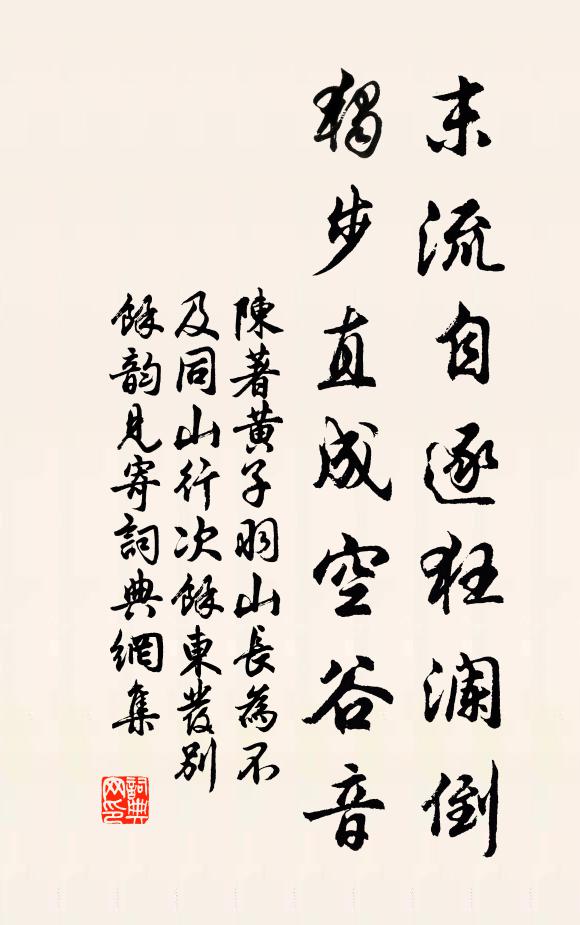 末流自逐狂澜倒
獨步直成空谷音
陳著黄子羽山長為不
及同山行次餘東發別
餘韵見寄詞典網集
詞典网印